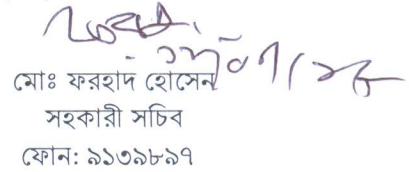 মোঃ ফরহাদ হোসেন
সহকারী সচিব
ফোন: ৯১৩৯৮৯৭